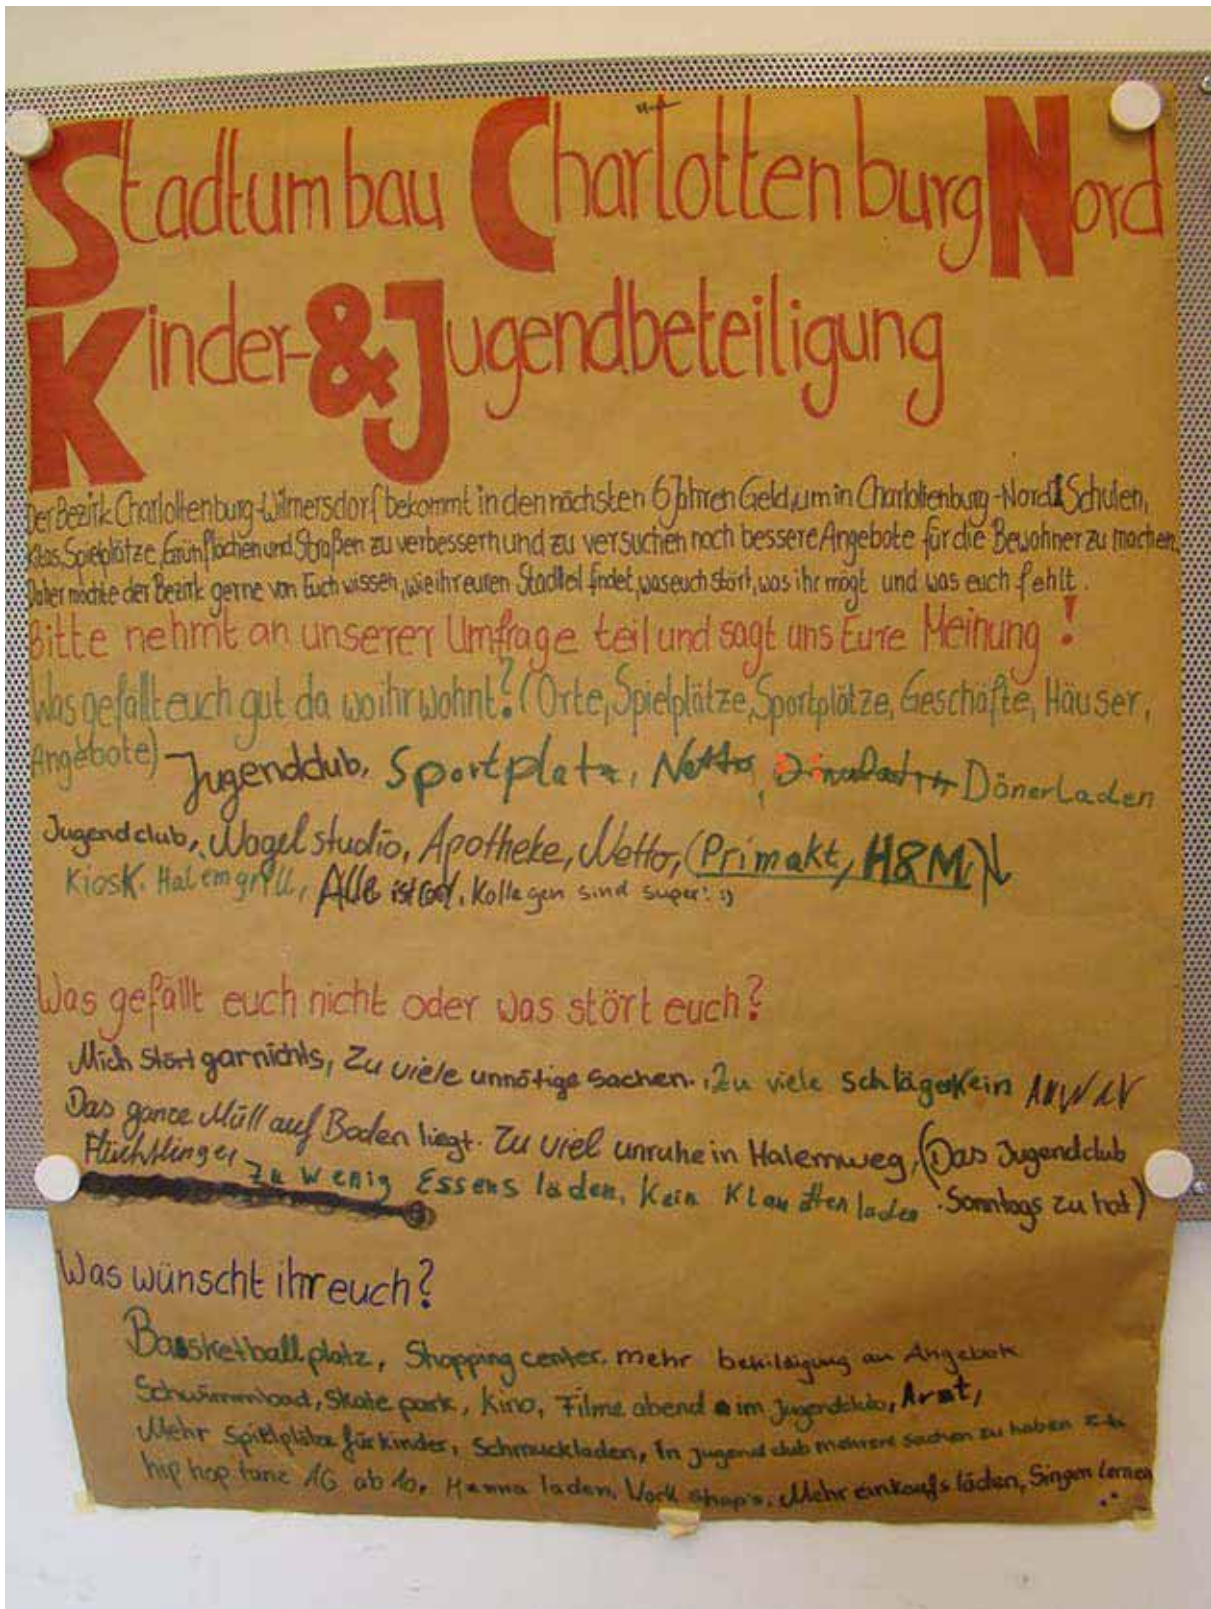 Stadtumbau Charlottenburg Nord
Kinder-& Jugendbeteiligung
Der Bezirk Charlottenburg-Wilmersdorf bekommt in den nächsten 6 Jahren Geld, um in Charlottenburg-Nord Schulen,
Kitas, Spielplätze, Grünflächen und Straßen zu verbessern und zu versuchen noch bessere Angebote für die Bewohner zu machen.
Daher möchte der Bezirk gerne von Euch wissen, wie ihr euren Stadtteil findet, was euch stört, was ihr mögt und was euch fehlt.
Bitte nehmt an unserer Umfrage teil und sagt uns Eure Meinung!
Was gefällt euch gut da wo ihr wohnt? (Orte, Spielplätze, Sportplätze, Geschäfte, Häuser,
Angebote) - Jugendclub, Sportplatz, Netto, Dönerladen
Jugendclub, Nagelstudio, Apotheke, Netto, (Primakt, H&M,)
Kiosk. Halemgrill, Alle ist cool. Kollegen sind super! :)
Was gefällt euch nicht oder was stört euch?
Mich stört garnichts, Zu viele unnötige sachen. Zu viele schläger kein
Das ganze Müll auf Boden liegt. Zu viel unruhe in Halemweg, (Das Jugendclub
Flüchtlinge, Zu wenig Essens läden, Kein Klamotten laden. Sonntags zu hat)
Was wünscht ihr euch?
Basketballplatz, Shopping center, mehr an Angebote
Schwimmbad, Skate park, Kino, Filme abend im Jugendclub, Arzt,
Mehr Spielplätze für kinder, Schmuckladen, In jugend club mehrere sachen zu haben z.b.
hip hop tanz AG ab 10, Hanna laden, Work shop's, Mehr einkaufs läden, Singen lernen